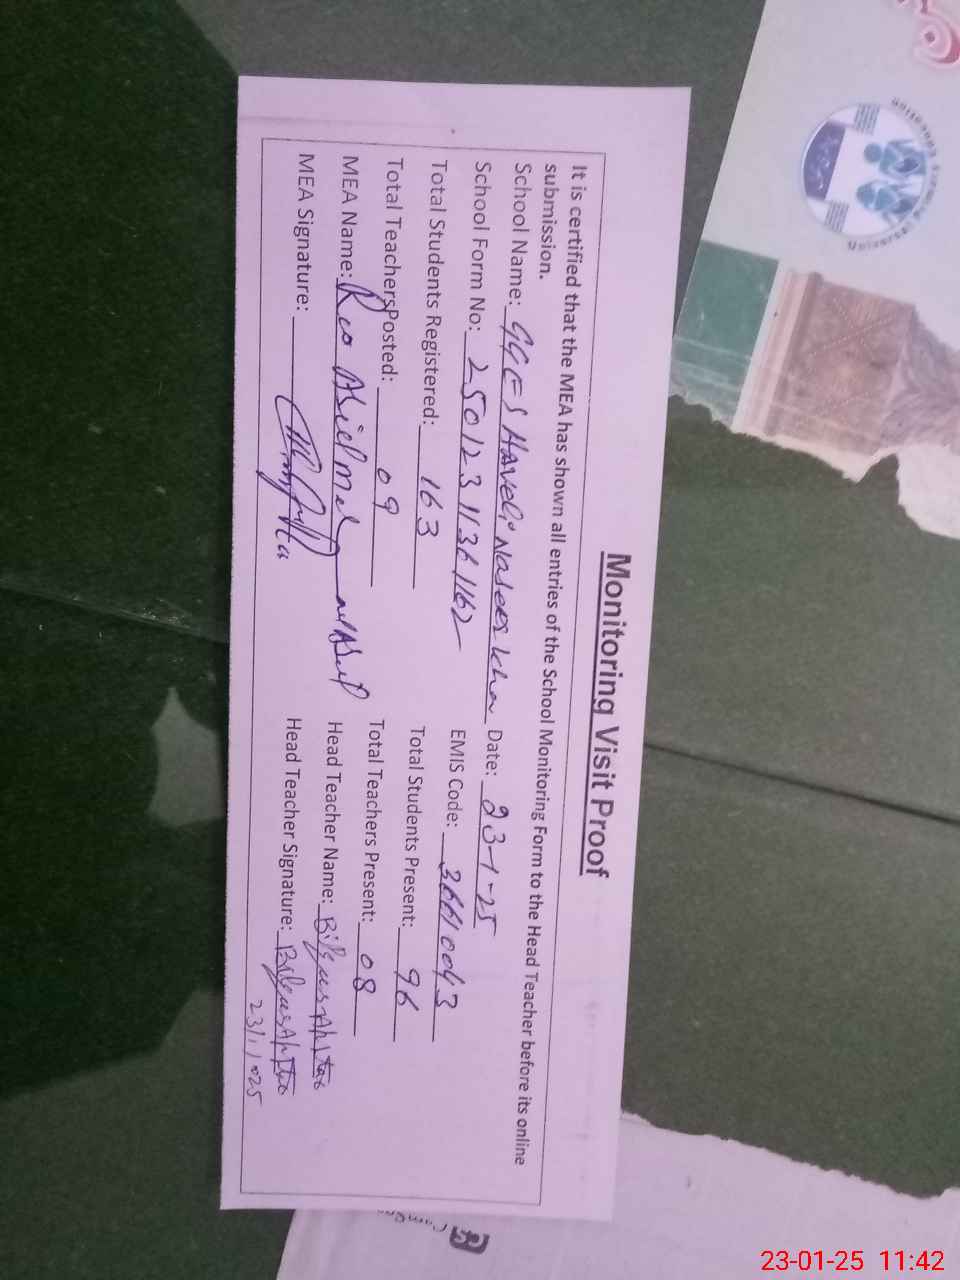 Monitoring Visit Proof
It is certified that the MEA has shown all entries of the School Monitoring Form to the Head Teacher before its online
submission.
School Name: GGES Haveli Naseer Khan Date: 23-1-25
School Form No: 250123 11361162 EMIS Code: 36610043
Total Students Registered: 163 Total Students Present: 96
Total Teachers Posted: 09 Total Teachers Present: 08
MEA Name: Rao Head Teacher Name: Bilqees Akhtar
MEA Signature: Head Teacher Signature: Bilqees Akhtar
23/1/025
23-01-25 11:42